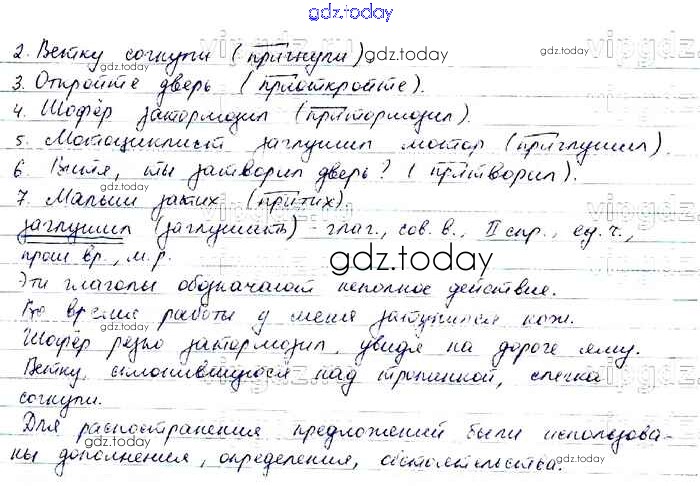 gdz.today
2. Ветку согнули (пригнули) gdz.today
3. Откройте дверь (приоткройте).
4. Шофёр затормозил (притормозил).
5. Мотоциклист заглушил мотор (приглушил).
6. Витя, ты затворил дверь? (притворил).
7. Малыш затих (притих).
заглушил (заглушить) - глаг., сов. в., II спр., ед. ч.,
прош. вр., м. р.
gdz.today
Эти глаголы обозначают неполное действие.
Во время работы у меня затупился нож.
Шофёр резко затормозил, увидя на дороге яму.
Ветку, склонившуюся над тропинкой, слегка
согнули.
Для распостранения предложений были использова-
ны дополнения, определения, обстоятельства.